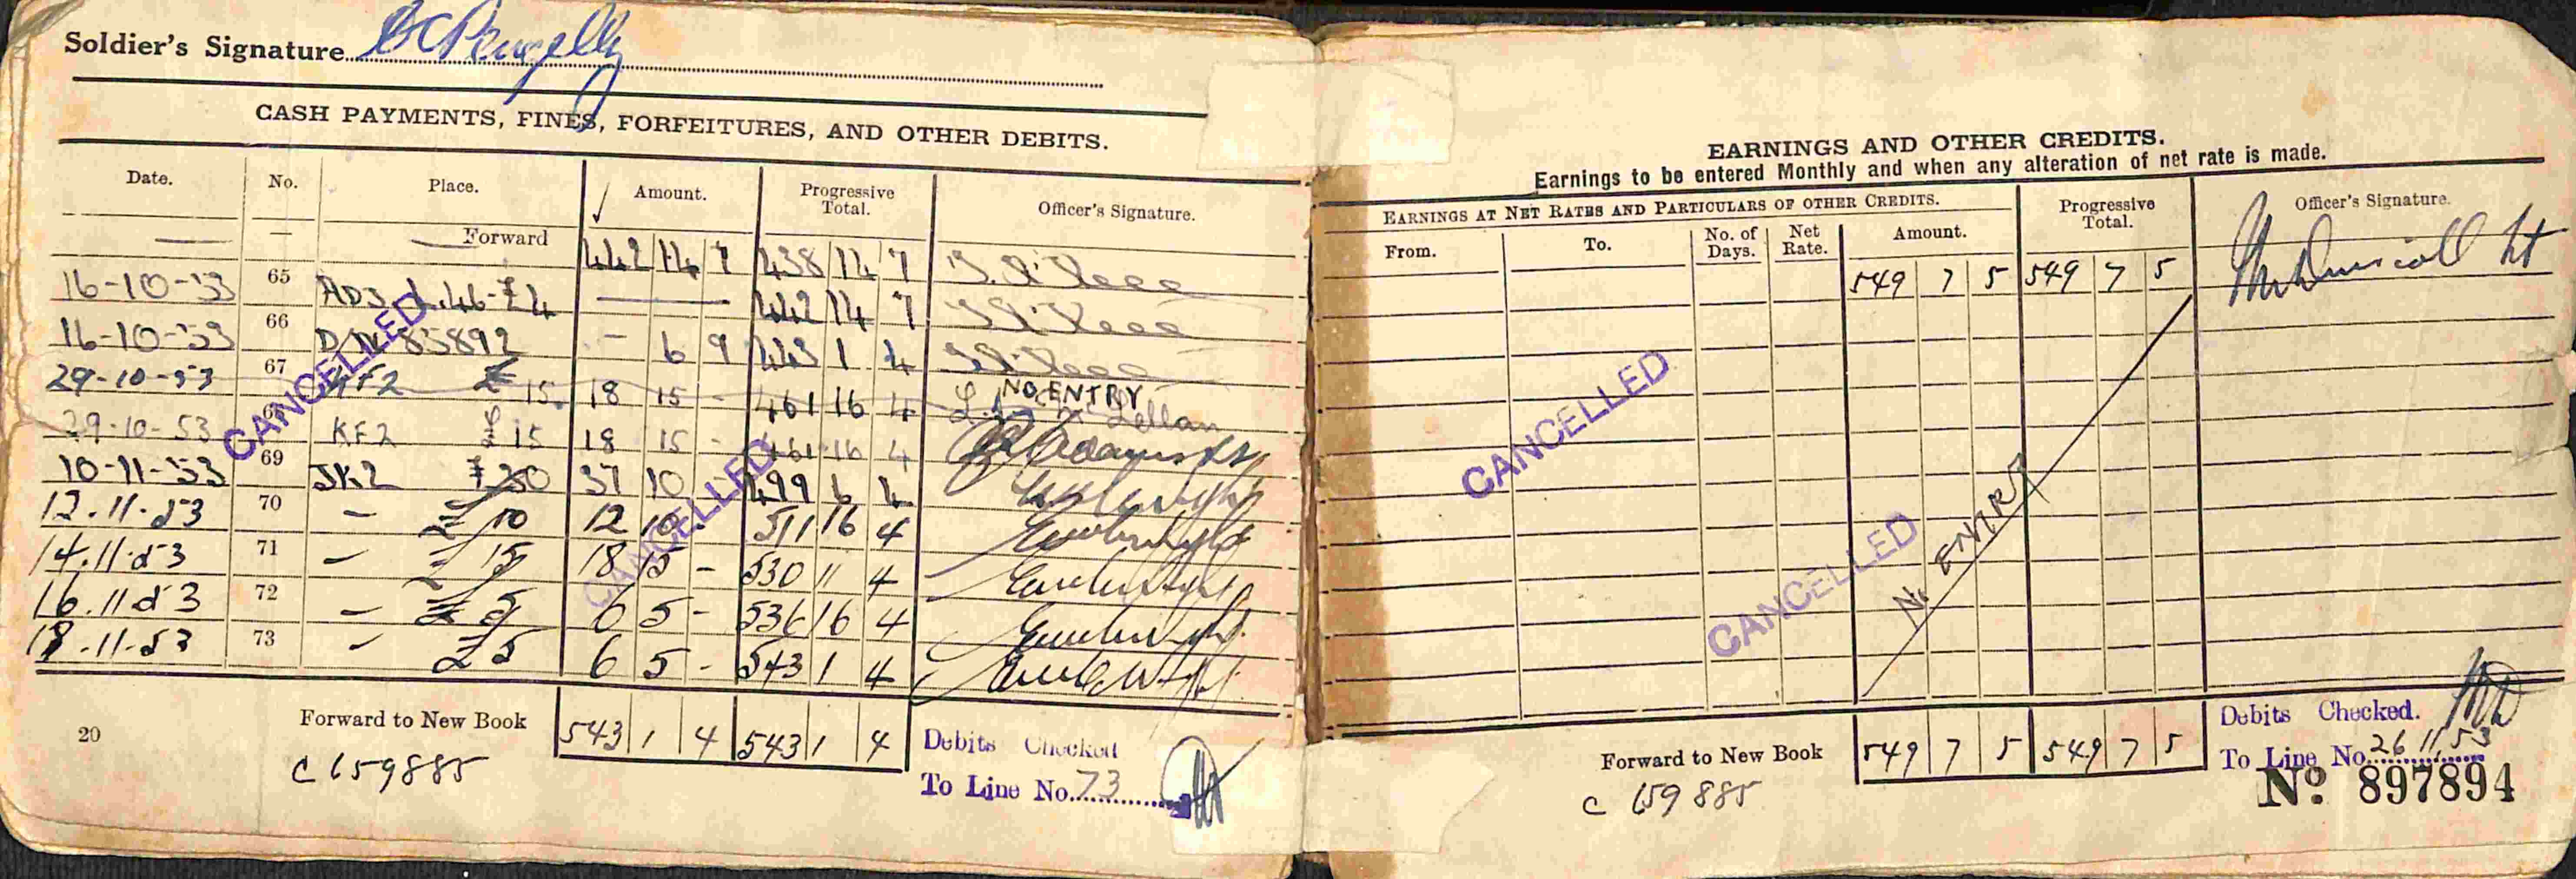 Soldier's Signature
CASH PAYMENTS, FINES, FORFEITURES, AND OTHER DEBITS.
Date. No. Place. Amount. Progressive Total. Officer's Signature.
— — Forward 442 14 7 438 14 7
16-10-53 65 ADJ L.46-£4 — 442 14 7
16-10-53 66 83892 - 6 9 443 1 4
29-10-53 67 KF2 £ 15. 18 15 - 461 16 4 NO ENTRY
29-10-53 68 KF2 £15 18 15 - 461 16 4
10-11-53 69 JK2 £30 37 10 499 6 4
12.11.53 70 - £10 12 10 - 511 16 4
14.11.53 71 - £15 18 15 - 530 11 4
16.11.53 72 - £5 6 5 - 536 16 4
18.11.53 73 - £5 6 5 - 543 1 4
CANCELLED
CANCELLED
20 Forward to New Book 543 1 4 543 1 4
C 659885
Debits Checked
To Line No. 73
EARNINGS AND OTHER CREDITS.
Earnings to be entered Monthly and when any alteration of net rate is made.
EARNINGS AT NET RATES AND PARTICULARS OF OTHER CREDITS. Progressive Total. Officer's Signature.
From. To. No. of Days. Net Rate. Amount.
549 7 5 549 7 5
CANCELLED
CANCELLED
No ENTRY
Forward to New Book 549 7 5 549 7 5
C 659885
Debits Checked.
To Line No. 26 11 53
No 897894